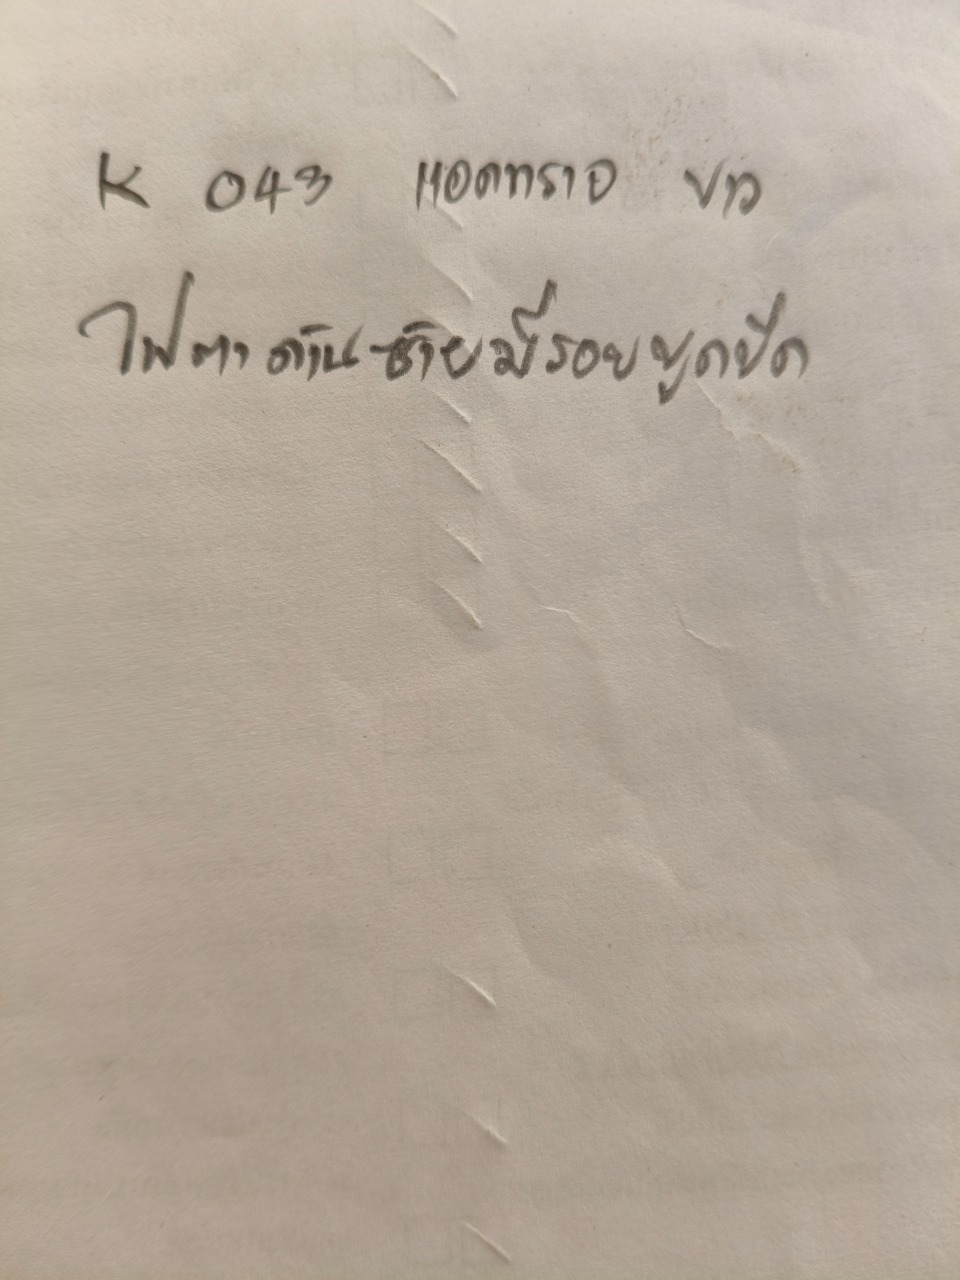 K 043 แอดทราจ ขาว
ไฟตาด้านซ้ายมีรอยขูดขีด